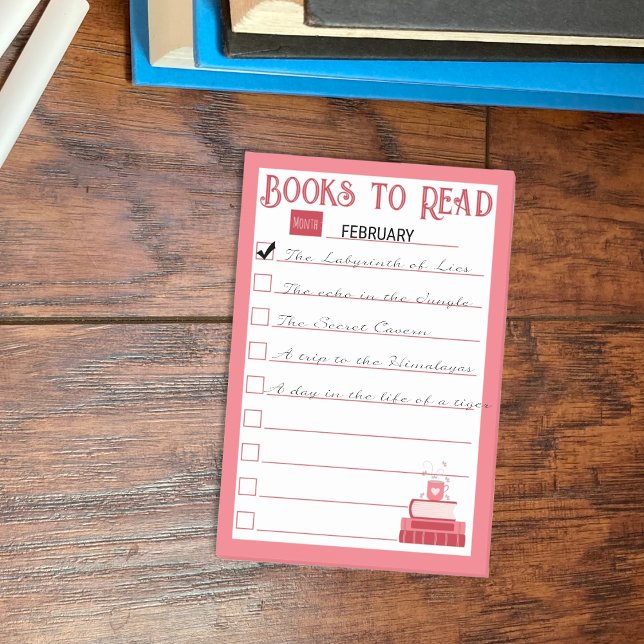 BOOKS TO READ
MONTH FEBRUARY
The Labyrinth of Lies
The echo in the Jungle
The Secret Cavern
A trip to the Himalayas
A day in the life of a tiger